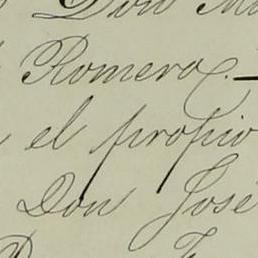 Don
Romero.
el propio
Don José